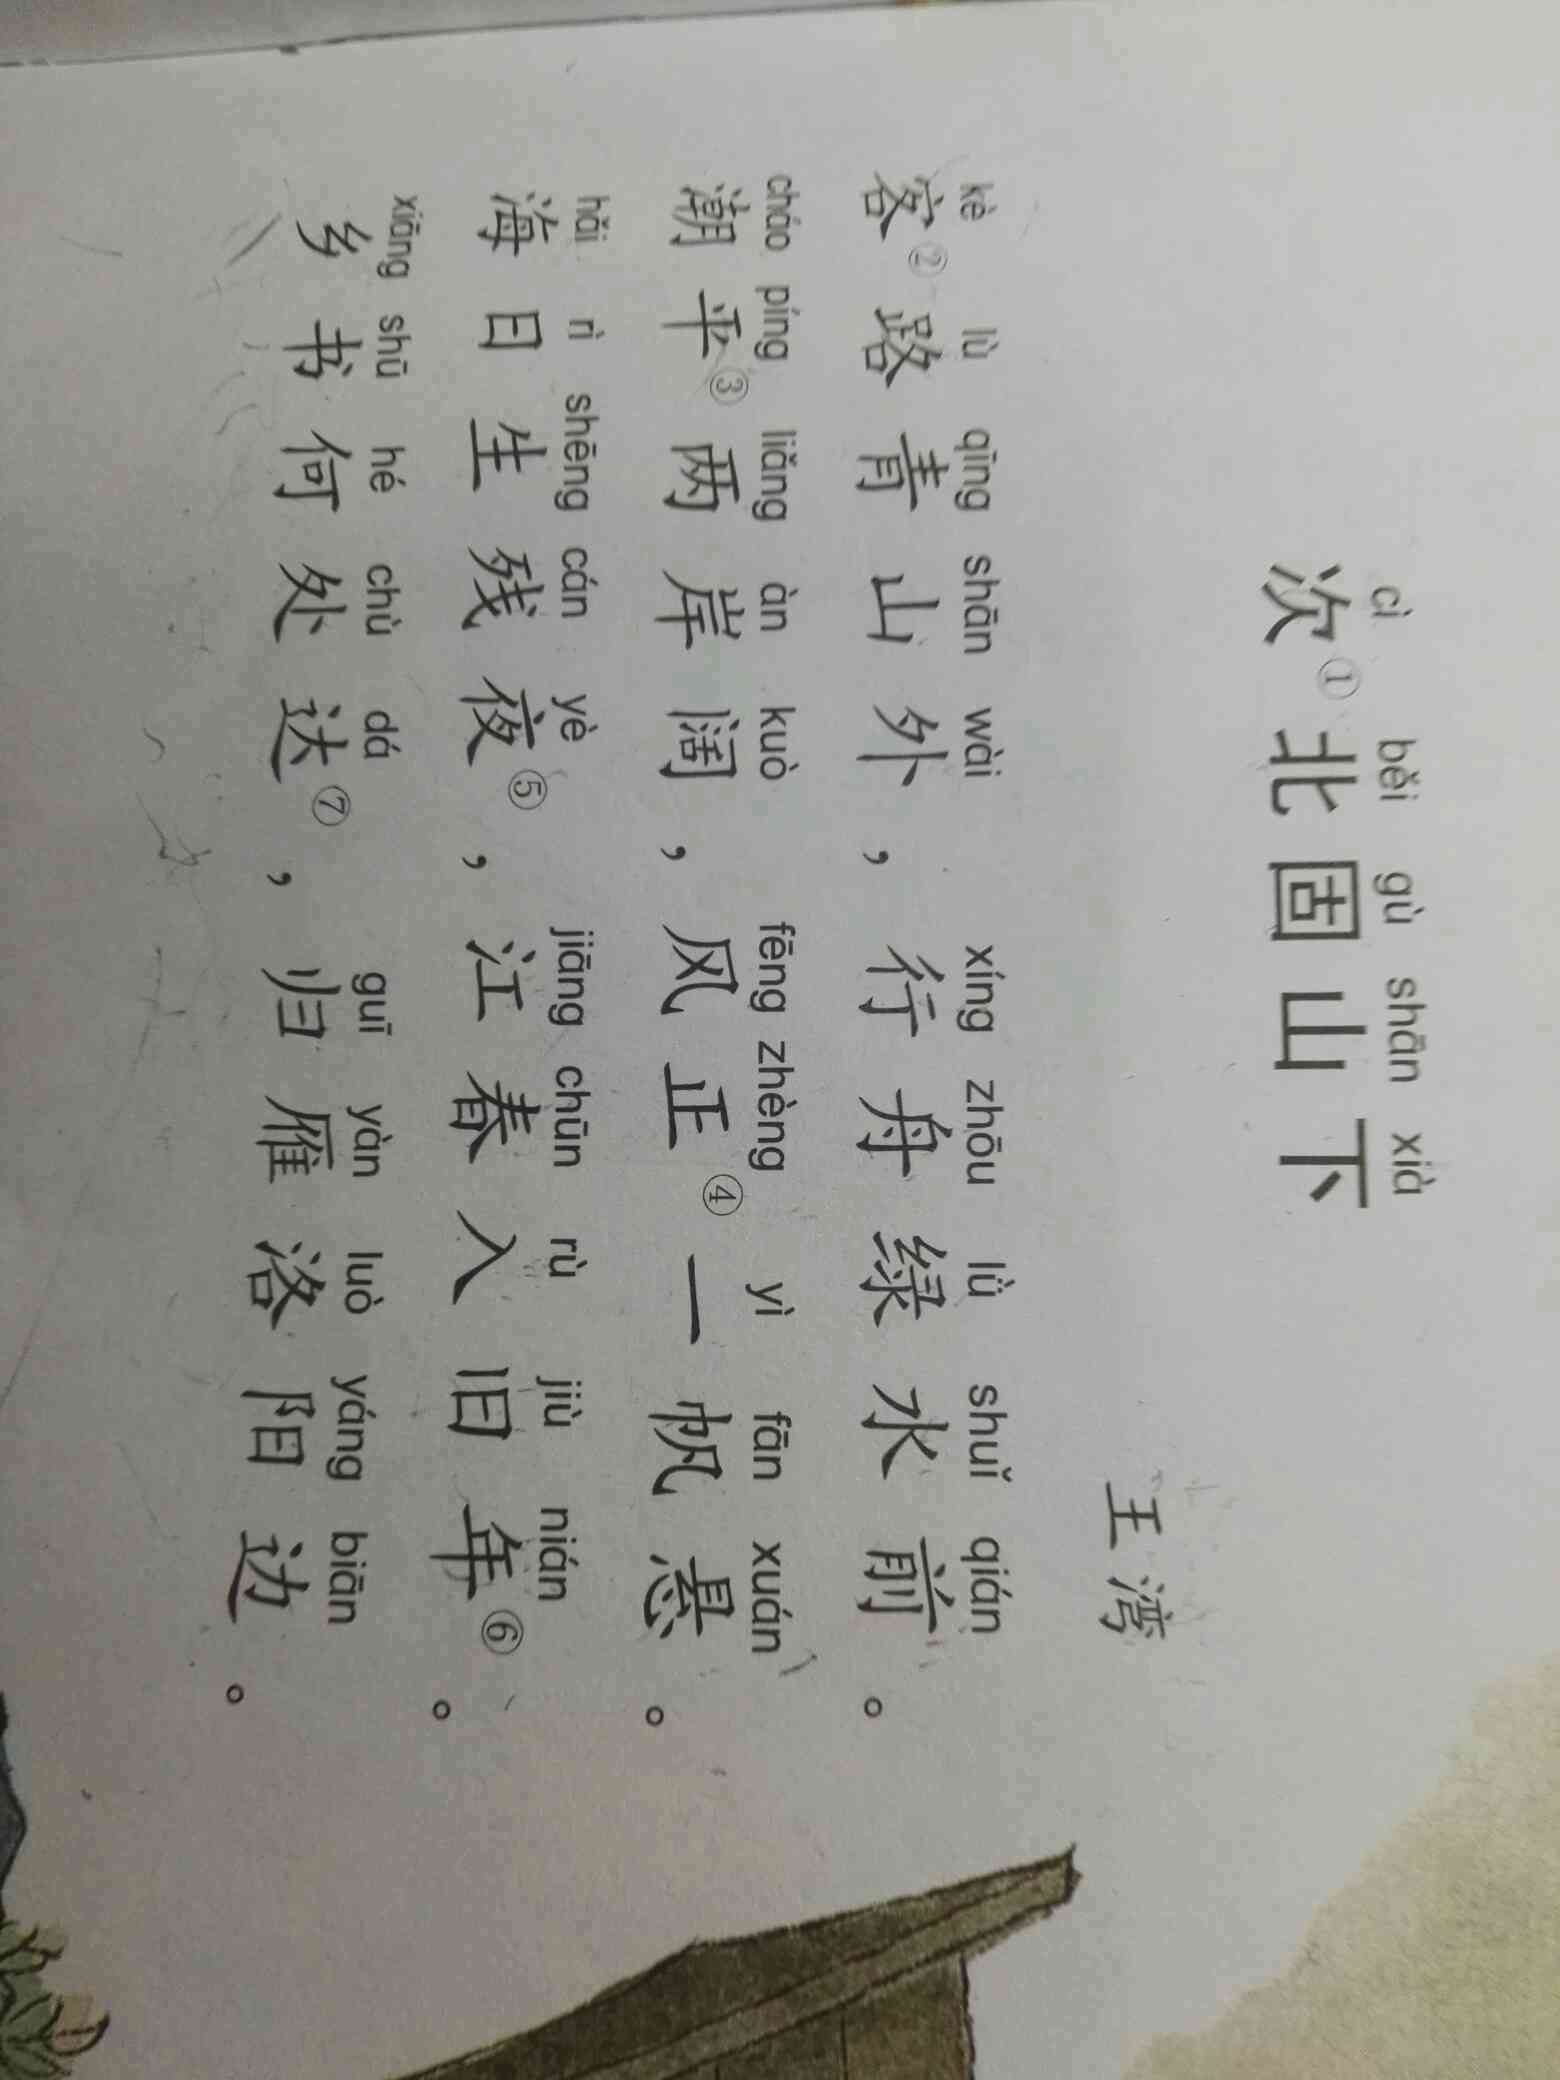 cì běi gù shān xià
次①北固山下
王湾
kè lù qīng shān wài xíng zhōu lǜ shuǐ qián
客②路青山外，行舟绿水前。
cháo píng liǎng àn kuò fēng zhèng yì fān xuán
潮平③两岸阔，风正④一帆悬。
hǎi rì shēng cán yè jiāng chūn rù jiù nián
海日生残夜⑤，江春入旧年⑥。
xiāng shū hé chù dá guī yàn luò yáng biān
乡书何处达⑦，归雁洛阳边。